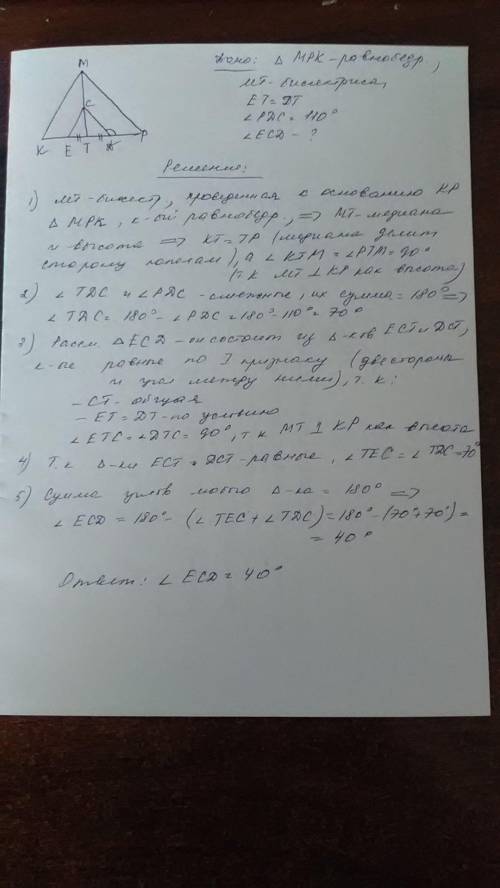 M
C
K E T D P
Дано: Δ MPK - равнобедр,
MT - биссектриса,
ET = DT
∠PDC = 110°
∠ECD - ?
Решение:
1) MT - биссект, проведенная к основанию KP
Δ MPK, к-ый равнобедр., => MT - медиана
и высота => KT = TP (медиана делит
сторону пополам), а ∠KTM = ∠PTM = 90°
(т.к. MT ⊥ KP как высота)
2) ∠TDC и ∠PDC - смежные, их сумма = 180° =>
∠TDC = 180° - ∠PDC = 180° - 110° = 70°
3) Рассм. ΔECD - он состоит из Δ-ков ECT и DCT,
к-ые равные по I признаку (две стороны
и угол между ними), т.к:
- CT - общая
- ET = DT - по условию
∠ETC = ∠DTC = 90°, т.к MT ⊥ KP как высота
4) Т.к Δ-ки ECT и DCT - равные, ∠TEC = ∠TDC = 70°
5) Сумма углов любого Δ-ка = 180° =>
∠ECD = 180° - (∠TEC + ∠TDC) = 180° - (70° + 70°) =
= 40°
Ответ: ∠ECD = 40°